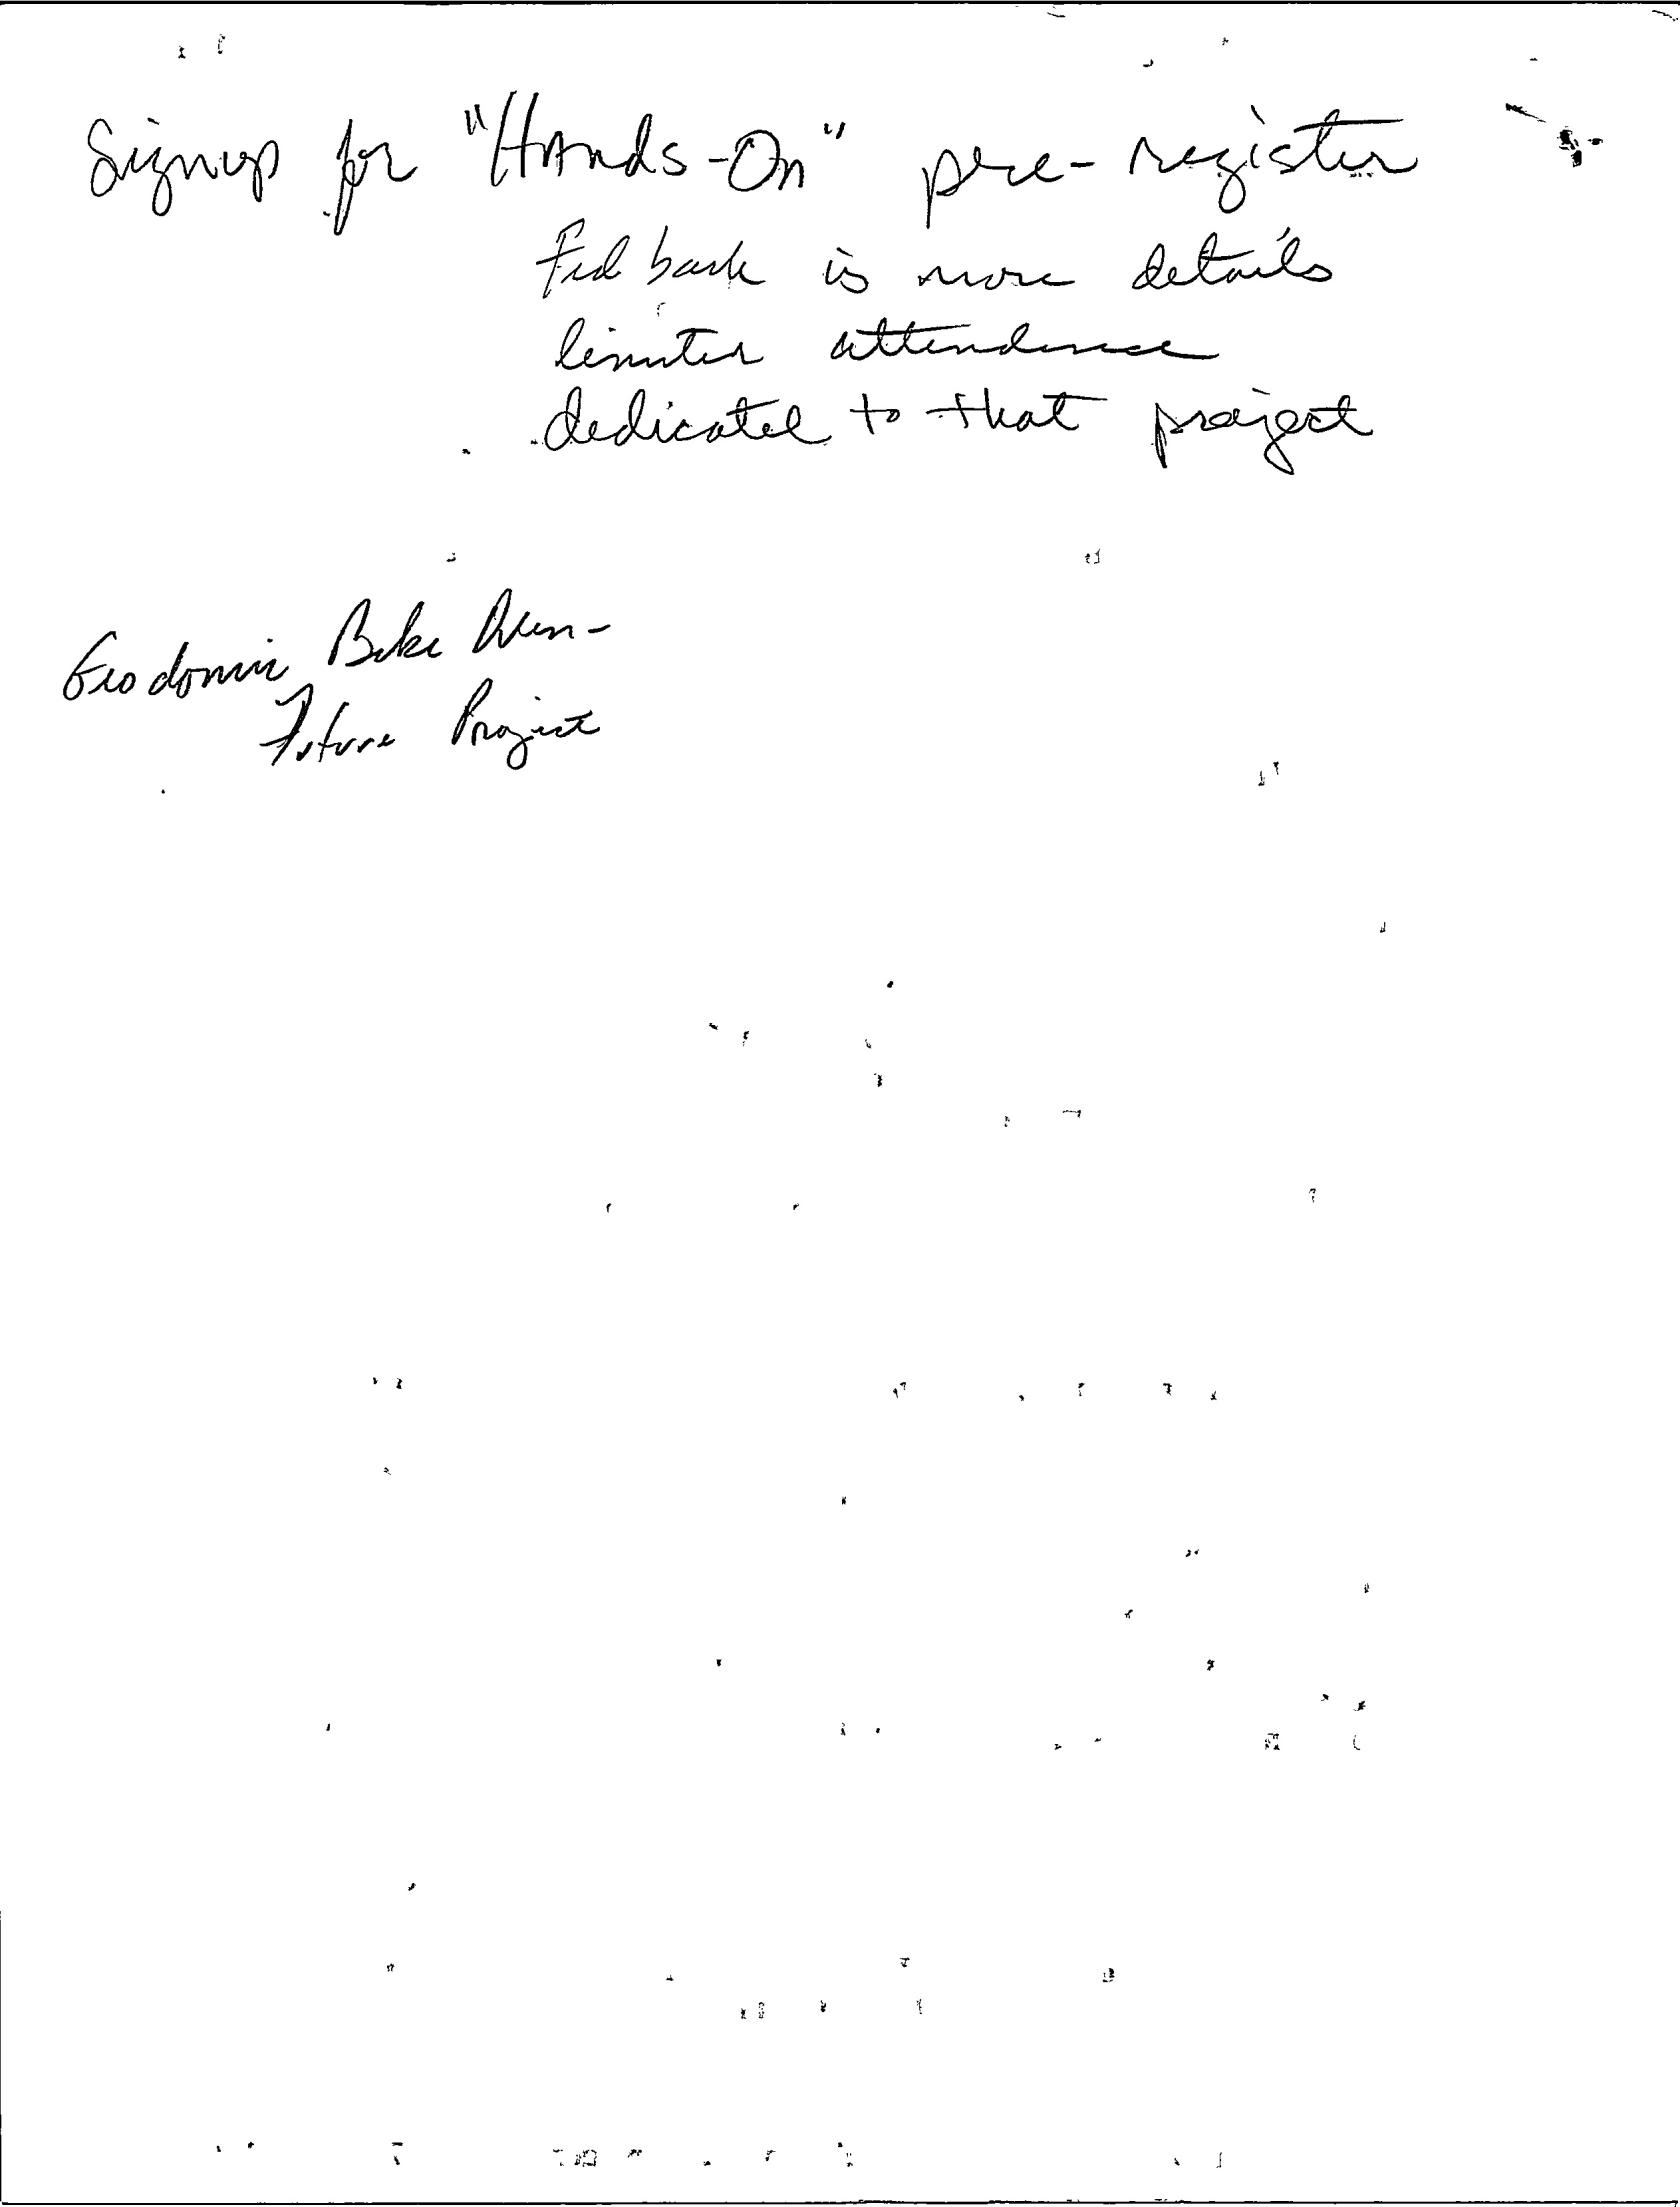 Signup for "Hands-On" pre-register
Fed back is more details
limited attendence
dedicated to that project
Bake Oven-
Future Project